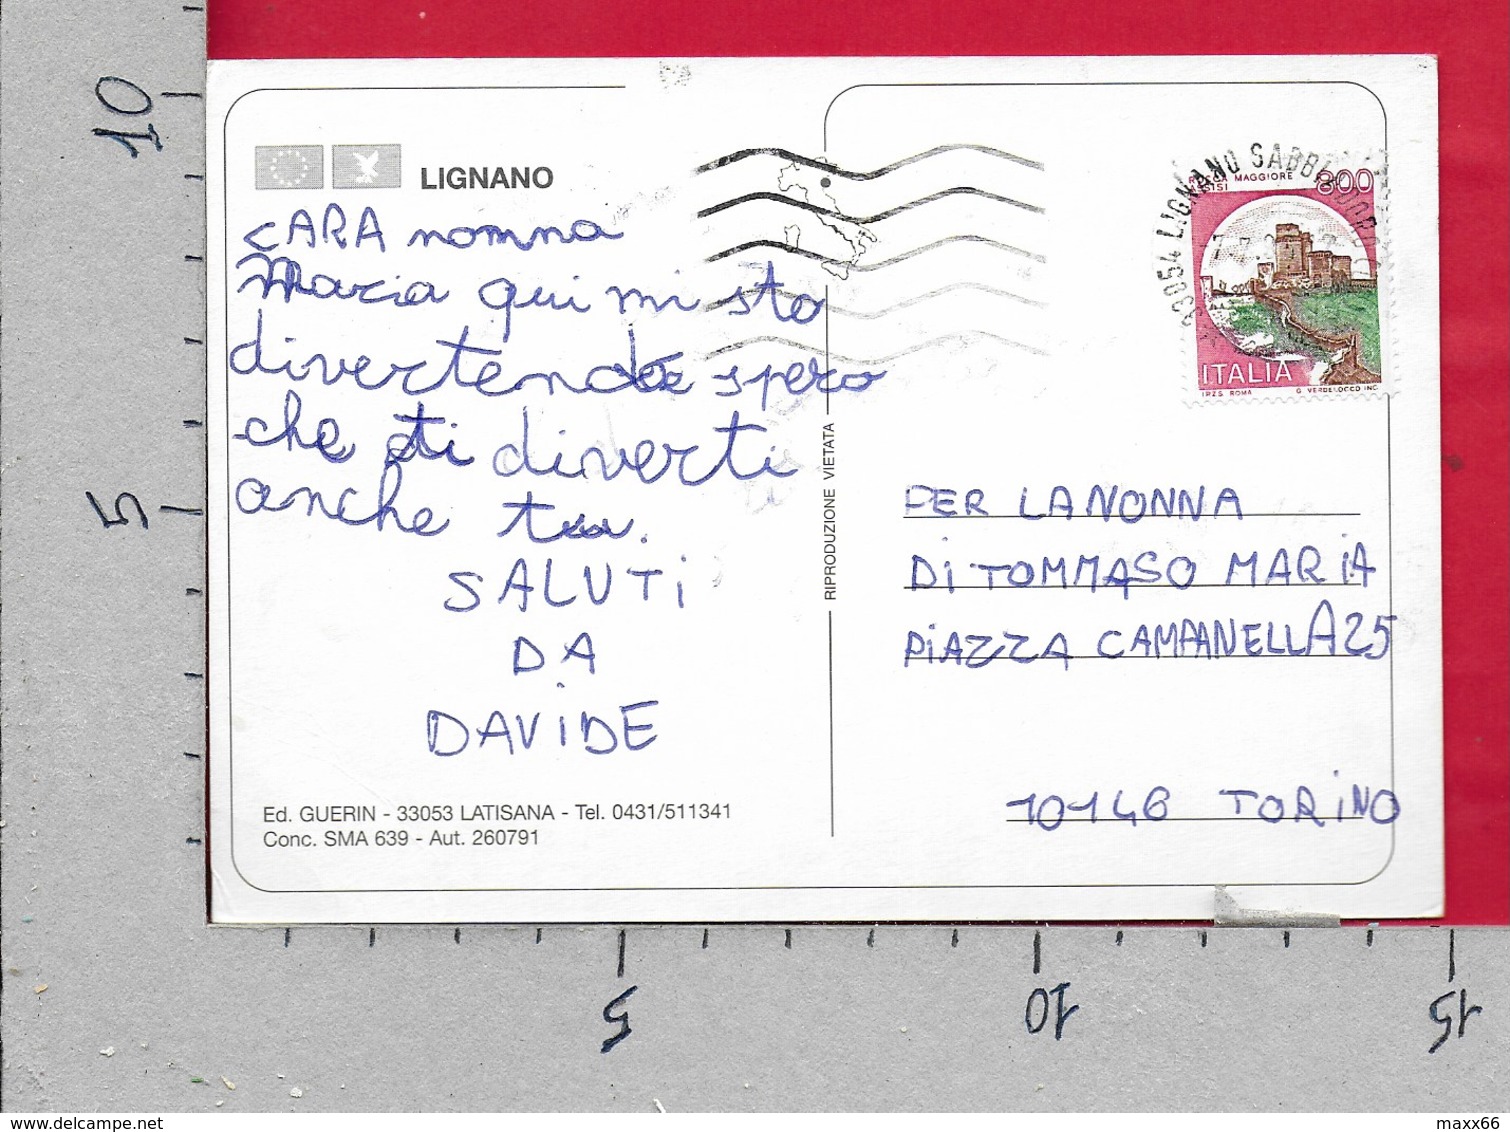 LIGNANO
CARA nonna
Maria qui mi sto
divertendo spero
che ti diverti
anche tu.
SALUTi
DA
DAViDE
Ed. GUERIN - 33053 LATISANA - Tel. 0431/511341
Conc. SMA 639 - Aut. 260791
RIPRODUZIONE VIETATA
33054 LIGNANO SABBIADORO
ROCCA MAGGIORE
ASSISI
800
ITALIA
I.P.Z.S. ROMA G. VERDELOCCO INC.
PER LA NONNA
Di TOMMASO MARiA
PiAZZA CAMPANELLA 25
10146 TORiNO
10
5
5
10
15
delcampe.net
maxx66